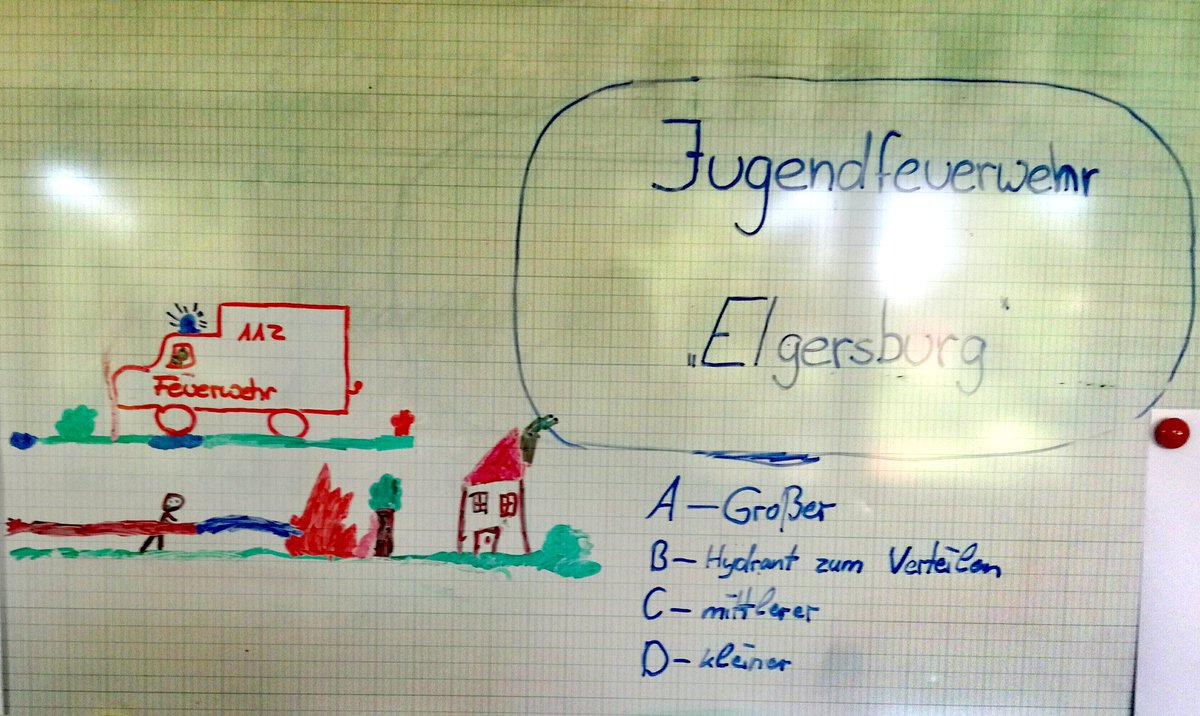 Jugendfeuerwehr
„Elgersburg
112
Feuerwehr
A – Großer
B – Hydrant zum Verteilen
C – mittlerer
D – kleiner